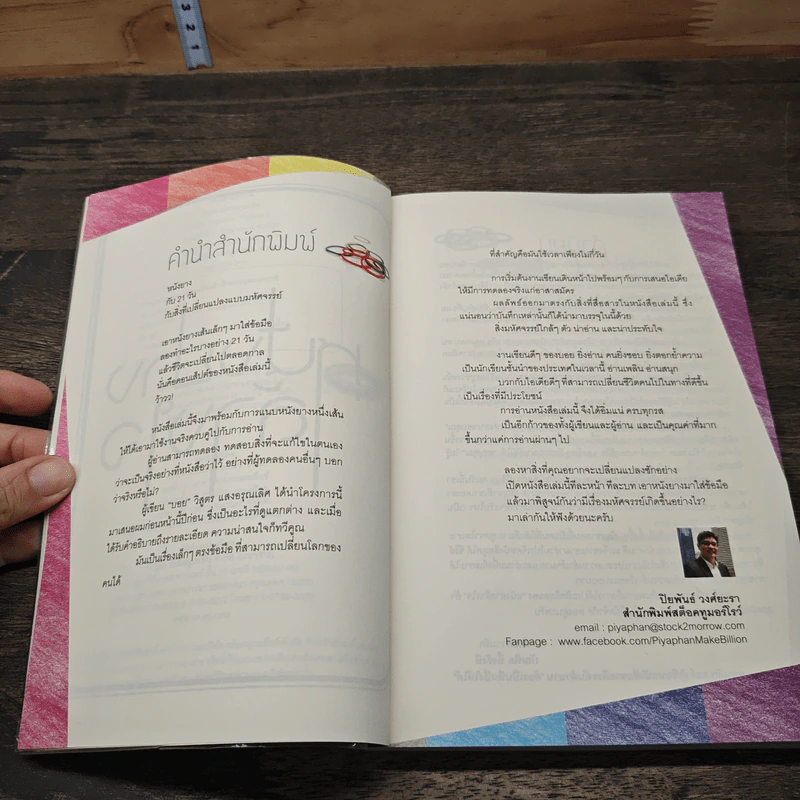 3 2 1
คำนำสำนักพิมพ์
หนังยาง
กับ 21 วัน
กับสิ่งที่เปลี่ยนแปลงแบบมหัศจรรย์
เอาหนังยางเส้นเล็กๆ มาใส่ข้อมือ
ลองทำอะไรบางอย่าง 21 วัน
แล้วชีวิตจะเปลี่ยนไปตลอดกาล
นั่นคือคอนเส็ปต์ของหนังสือเล่มนี้
ว้าวว!
หนังสือเล่มนี้จึงมาพร้อมกับการแนบหนังยางหนึ่งเส้น
ให้ได้เอามาใช้งานจริงควบคู่ไปกับการอ่าน
ผู้อ่านสามารถทดลอง ทดสอบสิ่งที่จะแก้ไขในตนเอง
ว่าจะเป็นจริงอย่างที่หนังสือว่าไว้ อย่างที่ผู้ทดลองคนอื่นๆ บอก
ว่าจริงหรือไม่?
ผู้เขียน "บอย" วิสูตร แสงอรุณเลิศ ได้นำโครงการนี้
มาเสนอผมก่อนหน้านี้ปีก่อน ซึ่งเป็นอะไรที่ดูแตกต่าง และเมื่อ
ได้รับคำอธิบายถึงรายละเอียด ความน่าสนใจก็ทวีคูณ
มันเป็นเรื่องเล็กๆ ตรงข้อมือ ที่สามารถเปลี่ยนโลกของ
คนได้
ที่สำคัญคือมันใช้เวลาเพียงไม่กี่วัน
การเริ่มต้นงานเขียนเดินหน้าไปพร้อมๆ กับการเสนอไอเดีย
ให้มีการทดลองจริงแก่อาสาสมัคร
ผลลัพธ์ออกมาตรงกับสิ่งที่สื่อสารในหนังสือเล่มนี้ ซึ่ง
แน่นอนว่าบันทึกเหล่านั้นก็ได้นำมาบรรจุในนี้ด้วย
สิ่งมหัศจรรย์ใกล้ๆ ตัว น่าอ่าน และน่าประทับใจ
งานเขียนดีๆ ของบอย ยิ่งอ่าน คนยิ่งชอบ ยิ่งตอกย้ำความ
เป็นนักเขียนชั้นนำของประเทศในเวลานี้ อ่านเพลิน อ่านสนุก
บวกกับไอเดียดีๆ ที่สามารถเปลี่ยนชีวิตคนไปในทางที่ดีขึ้น
เป็นเรื่องที่มีประโยชน์
การอ่านหนังสือเล่มนี้ จึงได้อิ่มแน่ ครบทุกรส
เป็นอีกก้าวของทั้งผู้เขียนและผู้อ่าน และเป็นคุณค่าที่มาก
ขึ้นกว่าแค่การอ่านผ่านๆ ไป
ลองหาสิ่งที่คุณอยากจะเปลี่ยนแปลงซักอย่าง
เปิดหนังสือเล่มนี้ทีละหน้า ทีละบท เอาหนังยางมาใส่ข้อมือ
แล้วมาพิสูจน์กันว่ามีเรื่องมหัศจรรย์เกิดขึ้นอย่างไร?
มาเล่ากันให้ฟังด้วยนะครับ
ปิยพันธ์ วงศ์ยะรา
สำนักพิมพ์สต็อคทูมอร์โรว์
email : piyaphan@stock2morrow.com
Fanpage : www.facebook.com/PiyaphanMakeBillion